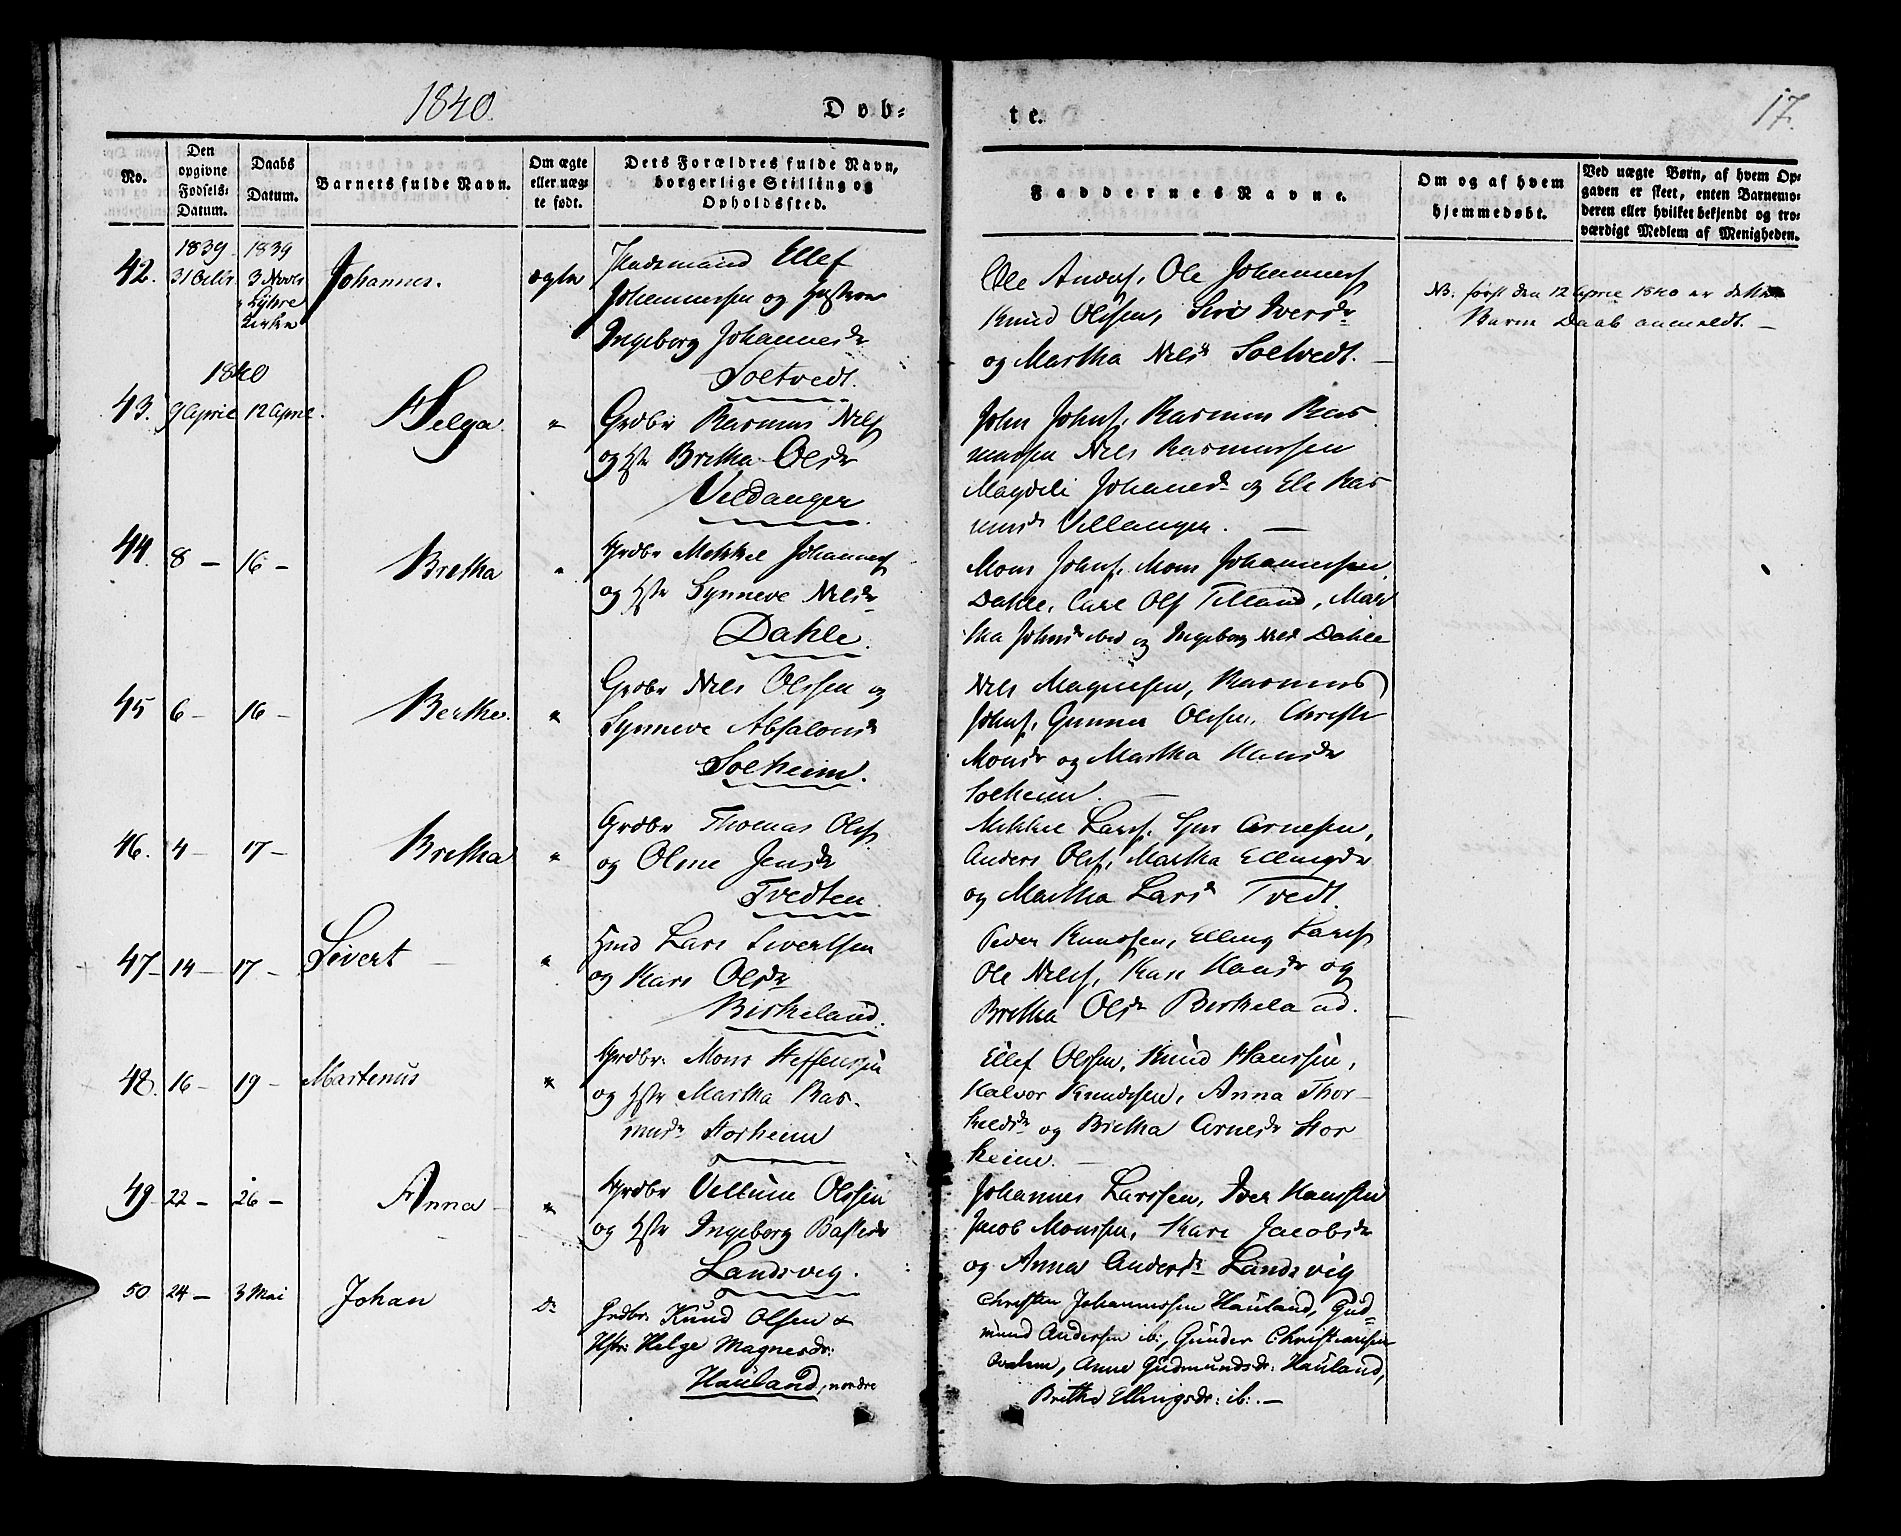 1840.
Døb-
te.
17.
No.
Den opgivne Fødsels-Datum.
Daabs Datum.
Barnets fulde Navn.
Om ægte eller uægte født.
Dets Forældres fulde Navn, borgerlige Stilling og Opholdssted.
Faddernes Navne.
Om og af hvem hjemmedøbt.
Ved uægte Børn, af hvem Op-
gaven er skeet, enten Barnemo-
deren eller hvilket bekjendt og tro-
værdigt Medlem af Menigheden.
42.
1839
31 Octbr
1839
3 Novbr
Kirke
Johannes.
ægte
Huusmand Ellef
Johannessen og Hustrue
Ingeborg Johannesdr
Soltvedt.
Ole Anders, Ole Johannes
Knud Olssen, Siri Iversdr
og Martha Nilsdr Soltvedt.
NB. først den 12 April 1840 er dette
Barns Daab anmeldt.
1840
43.
9 April
12 April
Helga.
"
Grdbr Rasmus Nels
og Hst Britha Olsdr
Veldanger
John Johns, Rasmus Ras
mussen Nels Rasmussen
Magdeli Johanesdr og Els Ras
musdr Vellanger.
44.
8 -
16 -
Bretha
"
Grdbr Mikkel Johannes
og Hst Synneve Nelsdr
Dahle.
Mons Johns, Mons Johannessen
Dahle, Carl Ols Tilland, Mar
tha Johnsdr ibid og Ingeborg Nelsd Dahle
45
6 -
16 -
Berthe.
"
Grdbr Nels Olssen og
Synneve Absalonsdr
Solheim.
Nels Magnesen, Rasmus
Johns, Gunner Olssen, Christi
Monsdr og Martha Hansdr
Solheim.
46.
4 -
17 -
Bretha
"
Grdbr Thomas Ols
og Oline Jensdr
Tvedten.
Mikkel Lars, Arnesen,
Anders Ols, Martha Ellingsdr
og Martha Larsdr Tvedt.
47 -
14 -
17 -
Sivert
"
Hmd Lars Sivertsen
og Kari Olsdr
Birkeland.
Peder Knudssen, Elling Lars
Ole Nils, Kari Hansdr og
Bretha Olsdr Birkeland.
48.
16 -
19 -
Martenus
"
Grdbr. Mons Steffensen
og Hst Martha Ras-
musdr Storheim
Ellef Olssen, Knud Hanssen,
Halvor Knudssen, Anna Thor-
kelsdr og Bretha Arnesdr Stor
heim.
49 -
22 -
26 -
Anna
"
Grdbr Villum Olssen
og Hst Ingeborg
Landsvig.
Johannes Larssen, Iver Hanssen
Jacob Monssen, Kari Jacobsdr
og Anna Andersdr Landsvig
50
24 -
3 Mai
Johan
Do
Grdbr. Knud Olsen &
Hstr: Helge Magnesdr:
Hauland, nordre
Christen Johannessen Hauland, Gud-
mund Andersen ib:, Gunder Christiansen
Anne Gudmundsdr: Hauland,
Britha Ellingsdr: ib:. -